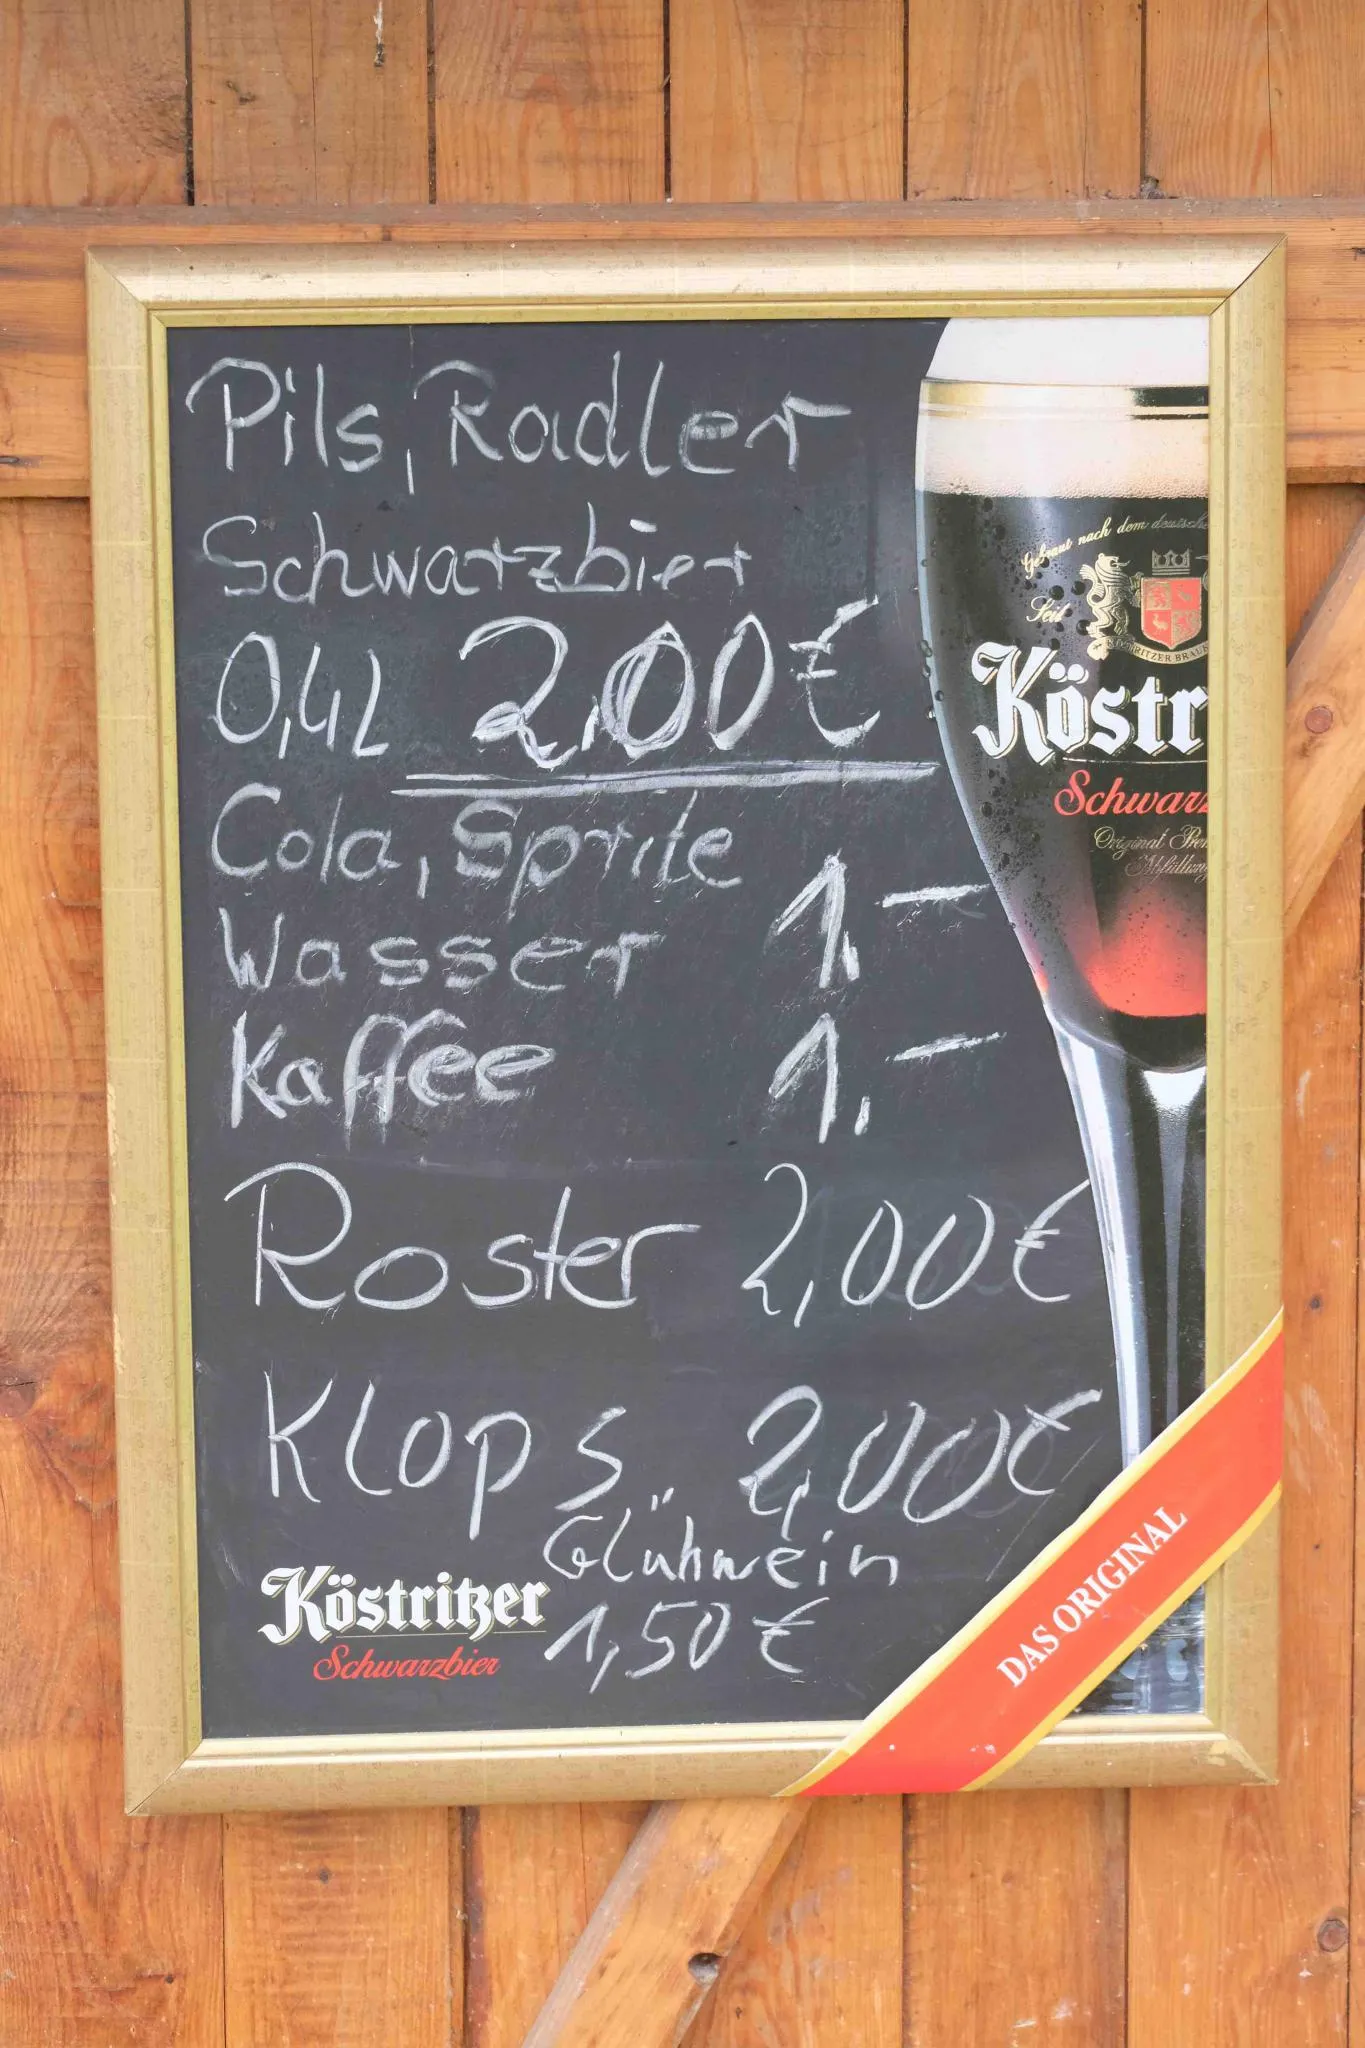 Pils, Radler
Schwarzbier
0,4L 2,00€
Cola, Sprite
Wasser 1.-
Kaffee 1.-
Roster 2,00€
Klops 2,00€
Glühwein
1,50€
Köstritzer
Schwarzbier
Gebraut nach dem deutsche
Seit
KÖSTRITZER BRAU
Köstr
Schwarz
Original
DAS ORIGINAL